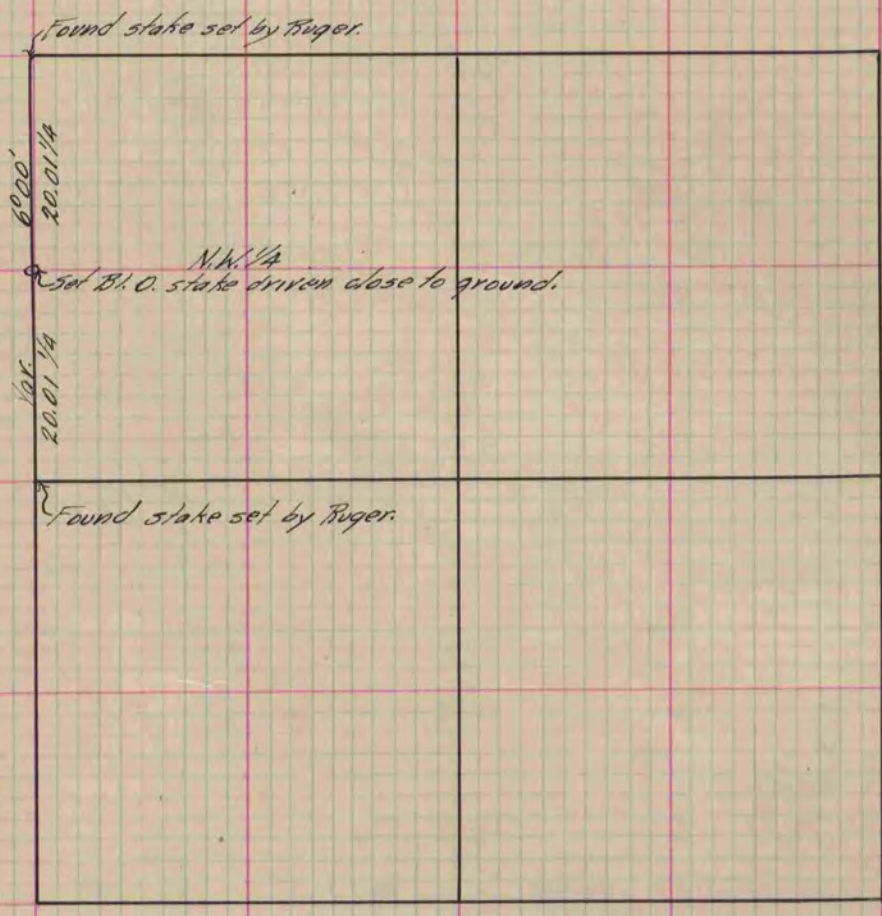 Found stake set by Ruger.
6°00'
20.01 1/4
N.W. 1/4
Set Bl. O. stake driven close to ground.
Var.
20.01 1/4
Found stake set by Ruger.